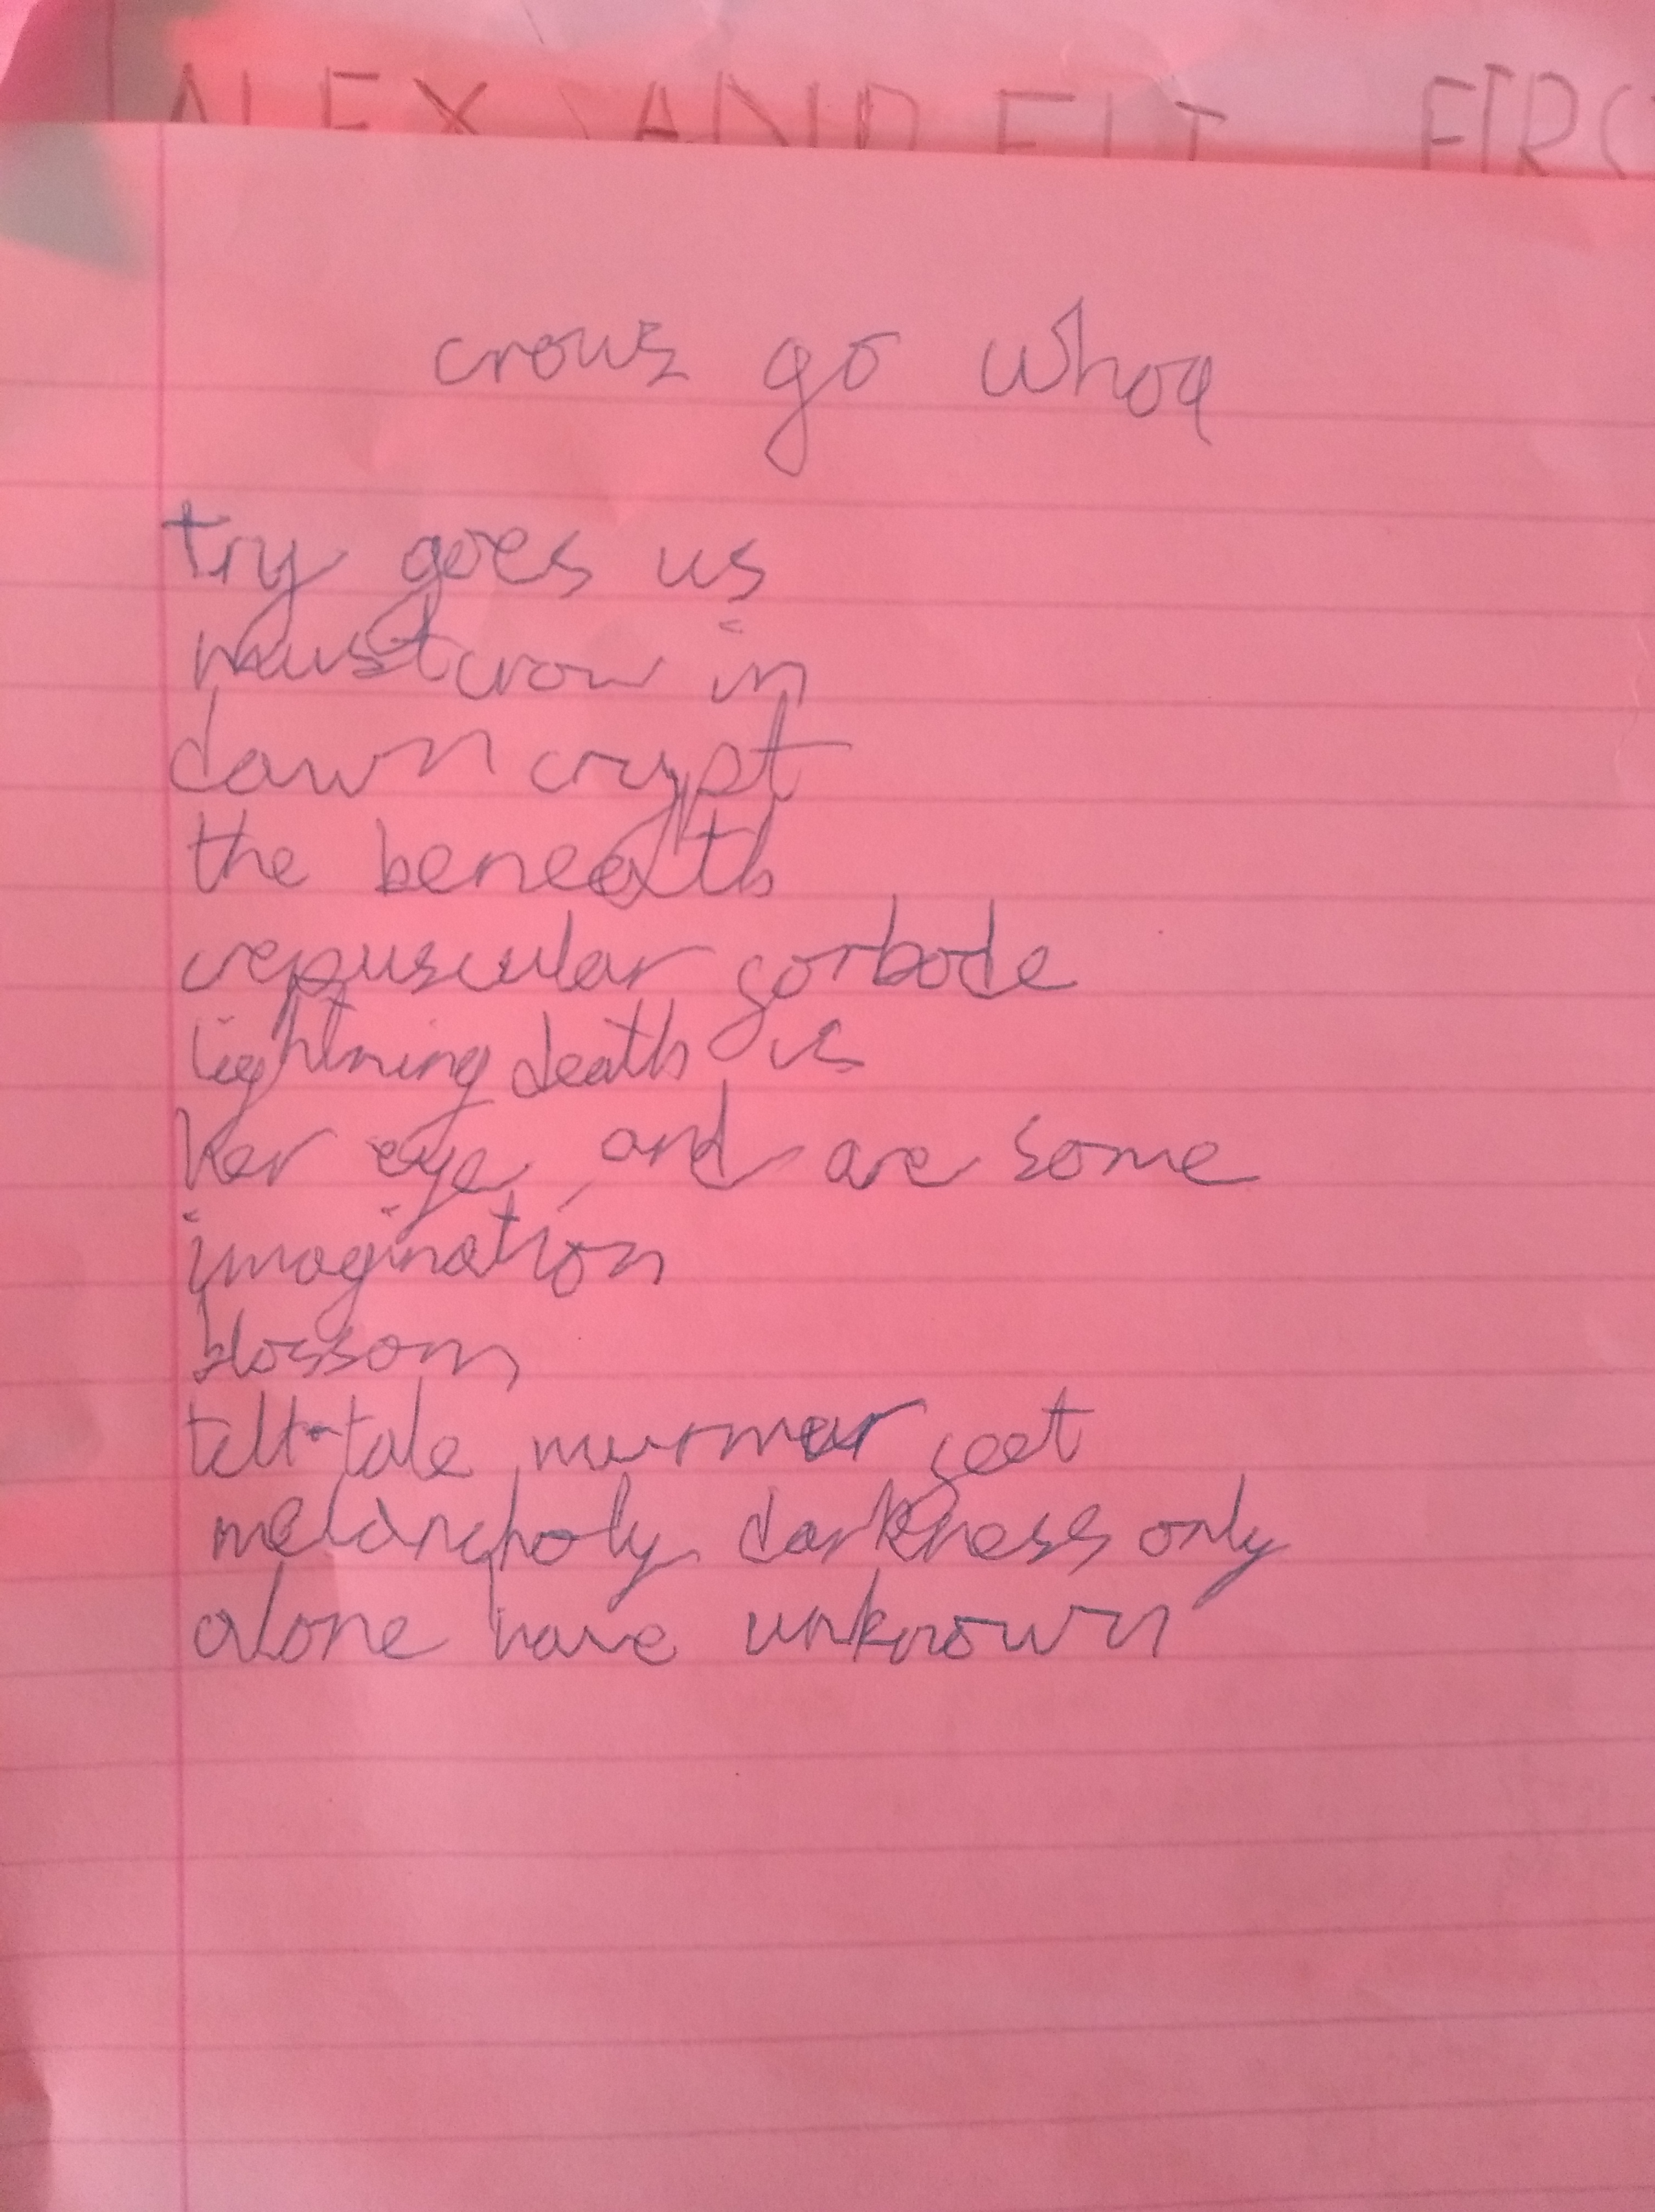 ALEX AND ELI FIRS
crows go whoa
try goes us
must crow in
dawn crypt
the beneath
crepuscular
lightning death is
her eye, and are some
imagination
blossom
tell-tale murmur
melancholy darkness only
alone have unknown